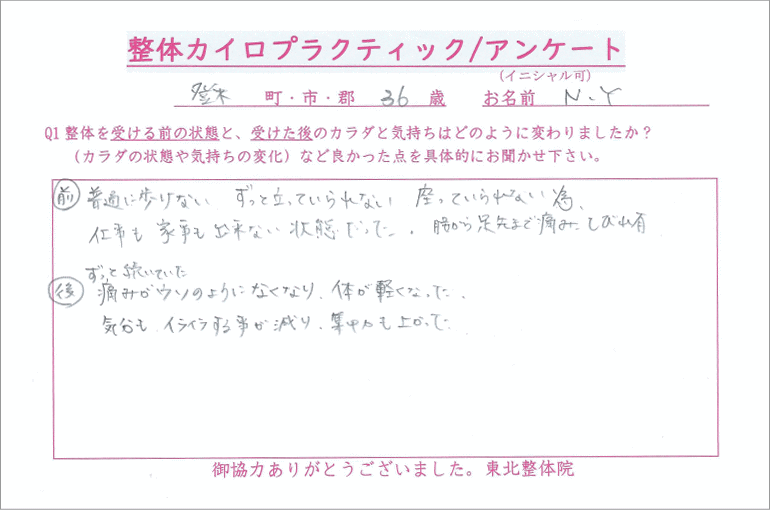 整体カイロプラクティック/アンケート
(イニシャル可)
登米 町・市・郡 36 歳 お名前 N.Y
Q1整体を受ける前の状態と、受けた後のカラダと気持ちはどのように変わりましたか?
(カラダの状態や気持ちの変化)など良かった点を具体的にお聞かせ下さい。
前 普通に歩けない ずっと立っていられない 座っていられない為、
仕事も家事も出来ない状態だった。腰から足先まで痛み、しびれ有
ずっと続いていた
後 痛みがウソのようになくなり、体が軽くなった。
気分も、イライラする事が減り、集中力も上がった
御協力ありがとうございました。東北整体院